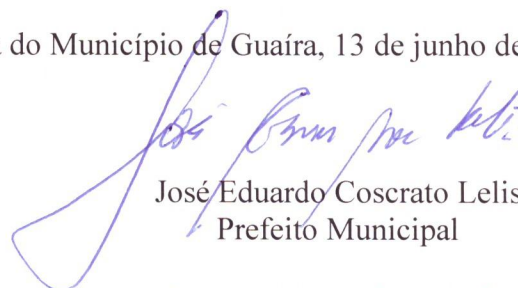 do Município de Guaíra, 13 de junho de
José Eduardo Coscrato Lelis
Prefeito Municipal